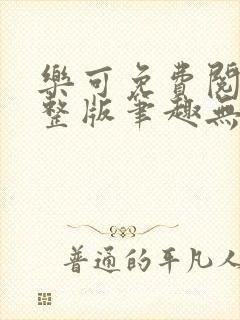 樂可免費閱
整版筆趣無
普通的平凡人